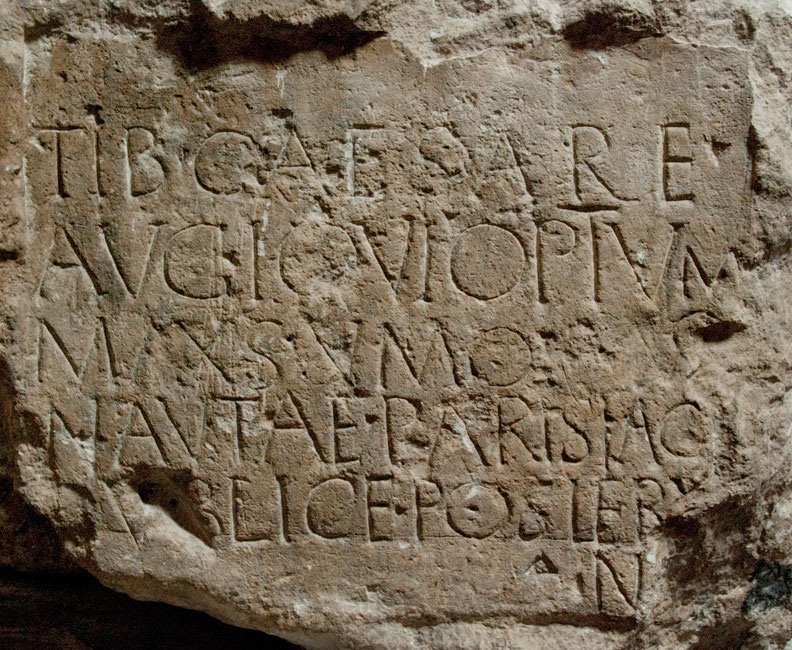 TIB CAESARE·
AVG IOVI OPTVM
MAXSVMO
NAVTAE·PARISIAC
PVBLICE·POSIERV
N